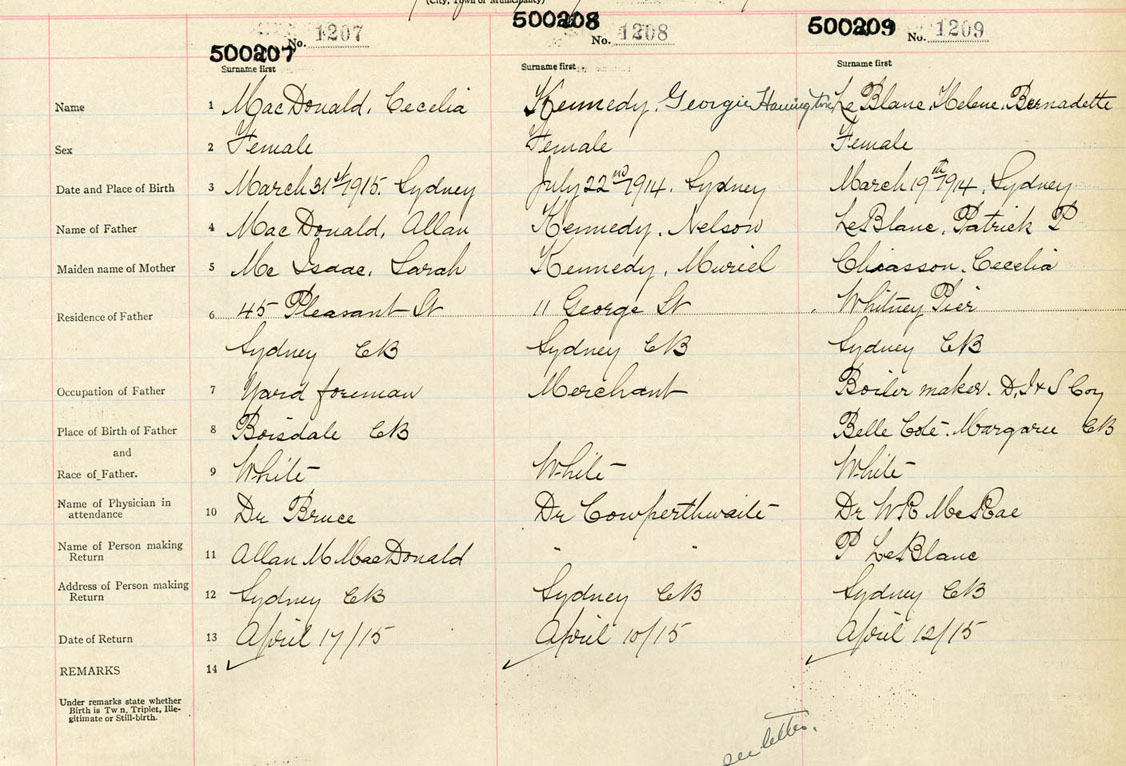 (City, Town or Municipality)
500207 No. 1207 500208 No. 1208 500209 No. 1209
Surname first Surname first Surname first
Name 1 MacDonald, Cecelia Kennedy, Georgie Harrington LeBlanc, Helene, Bernadette
Sex 2 Female Female Female
Date and Place of Birth 3 March 31st 1915. Sydney July 22nd 1914. Sydney March 19th 1914, Sydney
Name of Father 4 MacDonald, Allan Kennedy, Nelson LeBlanc, Patrick P
Maiden name of Mother 5 Mc Isaac, Sarah Kennedy, Muriel Chiasson, Cecelia
Residence of Father 6 45 Pleasant St 11 George St Whitney Pier
Sydney CB Sydney CB Sydney CB
Occupation of Father 7 Yard foreman Merchant Boiler maker. D, I & S Coy
Place of Birth of Father 8 Boisdale CB Belle Cote. Margaree CB
and
Race of Father. 9 White White White
Name of Physician in attendance 10 Dr Bruce Dr Cowperthwaite Dr WR McRae
Name of Person making Return 11 Allan M MacDonald " " P LeBlanc
Address of Person making Return 12 Sydney CB Sydney CB Sydney CB
Date of Return 13 April 17/15 April 10/15 April 12/15
REMARKS 14
Under remarks state whether
Birth is Tw n, Triplet, Ille-
gitimate or Still-birth.
see letter.